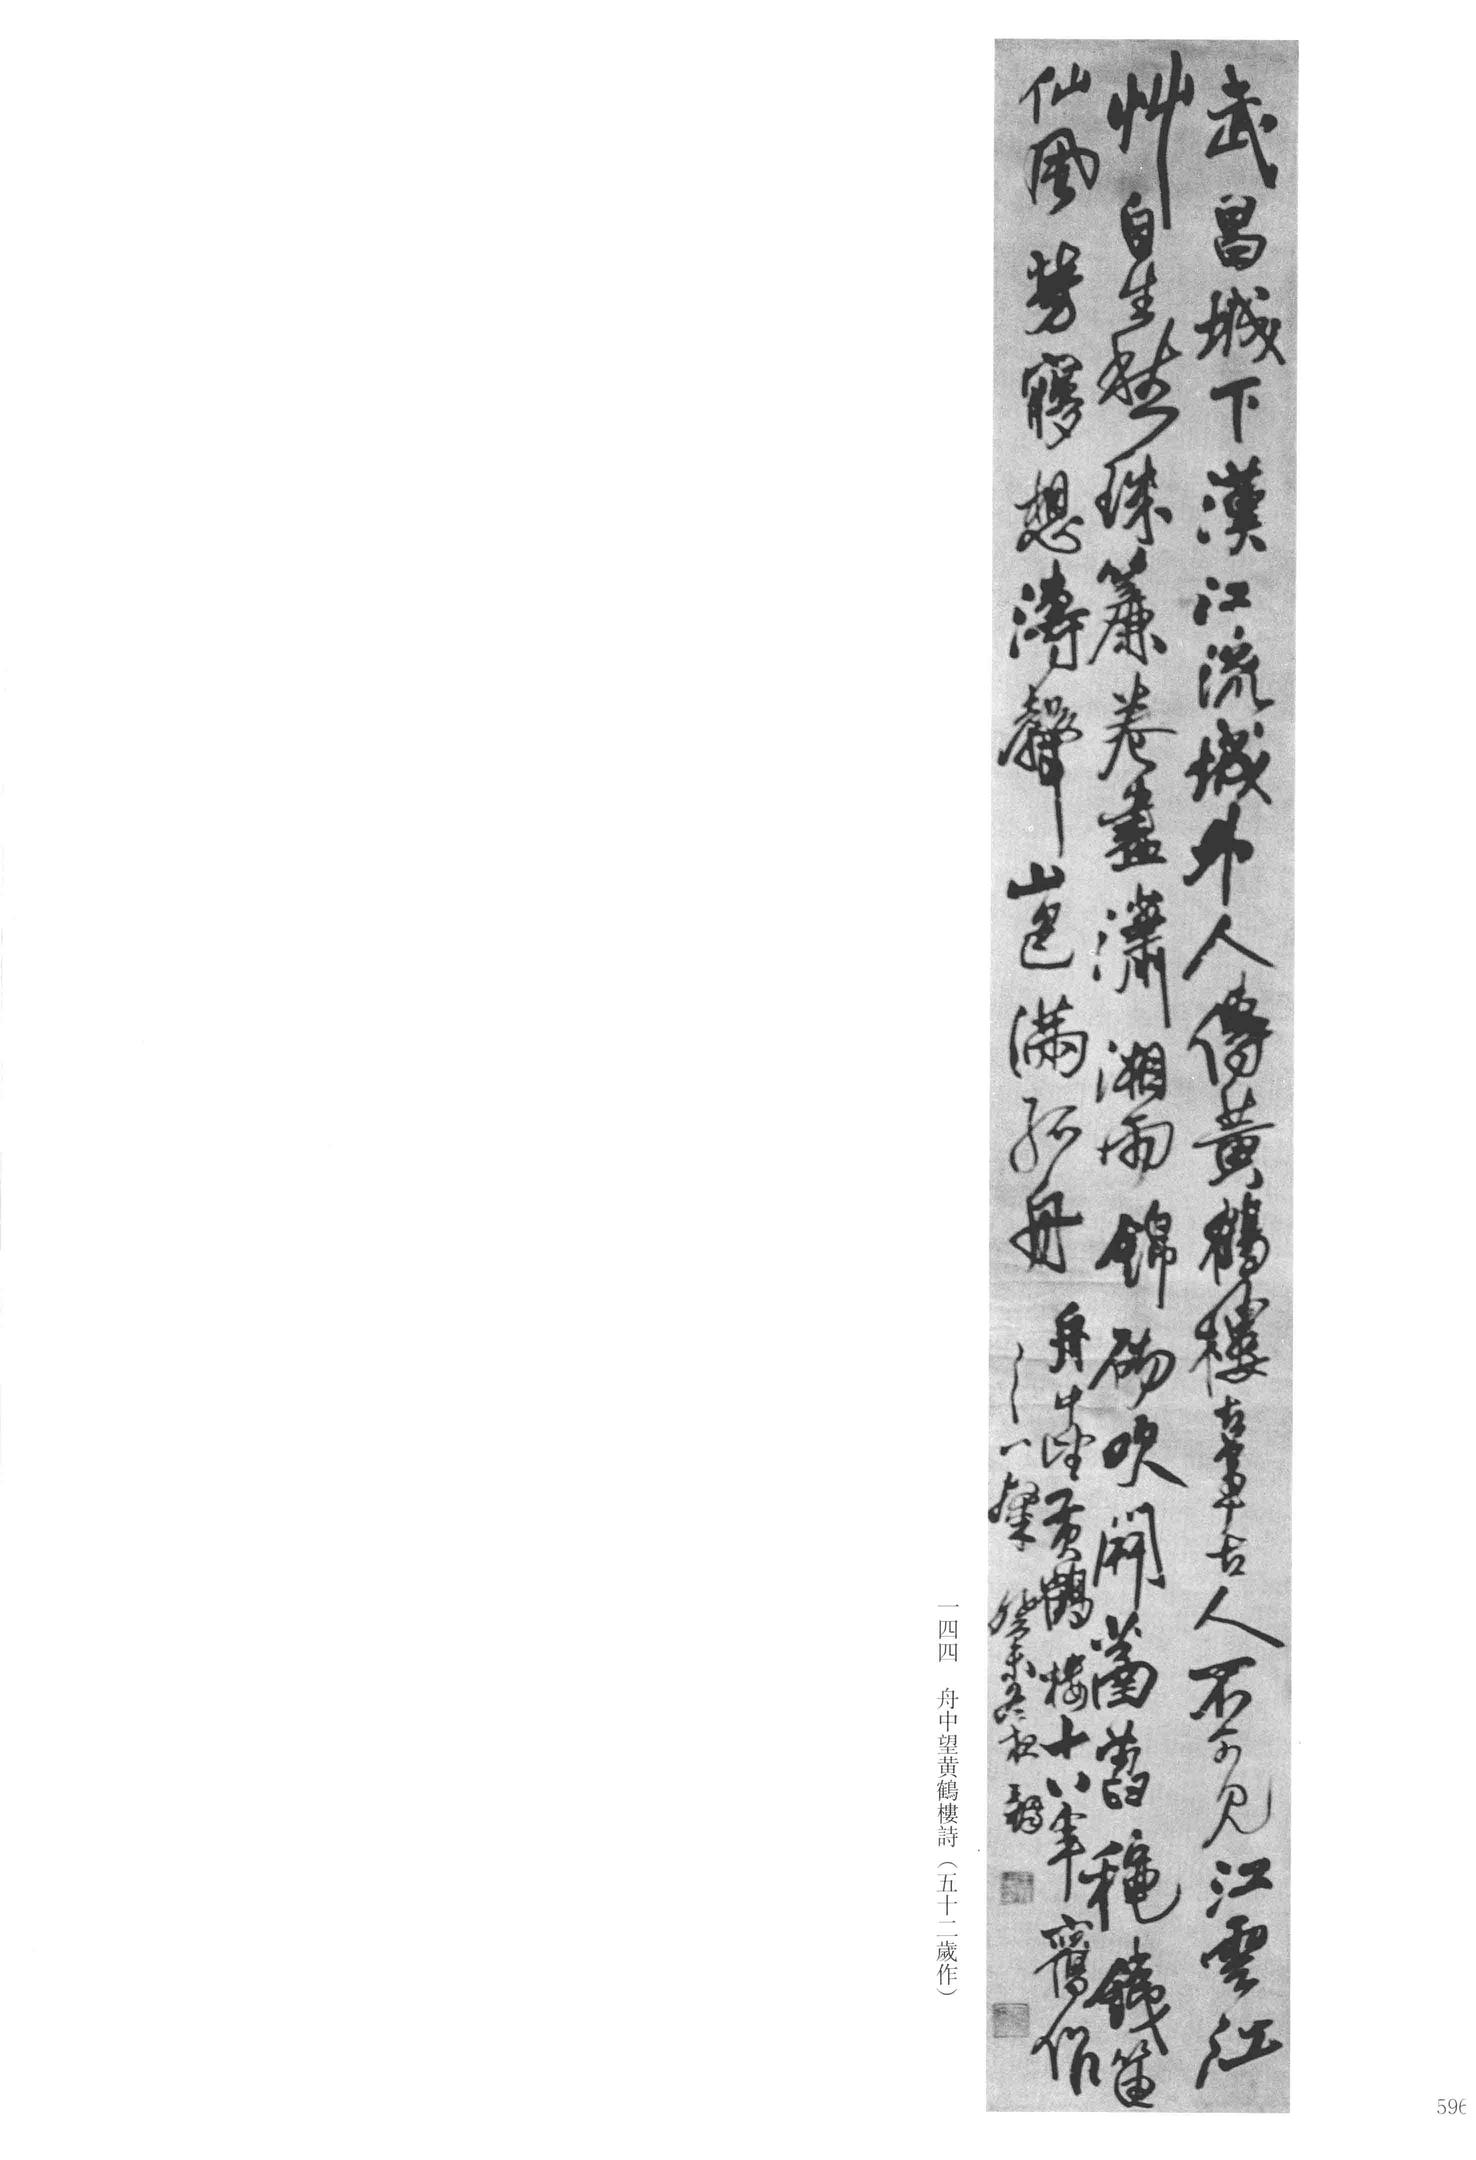 武昌城下漢江流城外人傳黃鶴樓古事古人不可見江雲江
艸自生愁珠簾卷盡瀟湘雨錦吹開菡萏穐鐵笛
仙風勞夢想濤聲山色滿孤舟 舟中望黃鶴樓十八年舊作
之一 癸未 王鐸
一四四 舟中望黄鶴樓詩（五十二歲作）
596